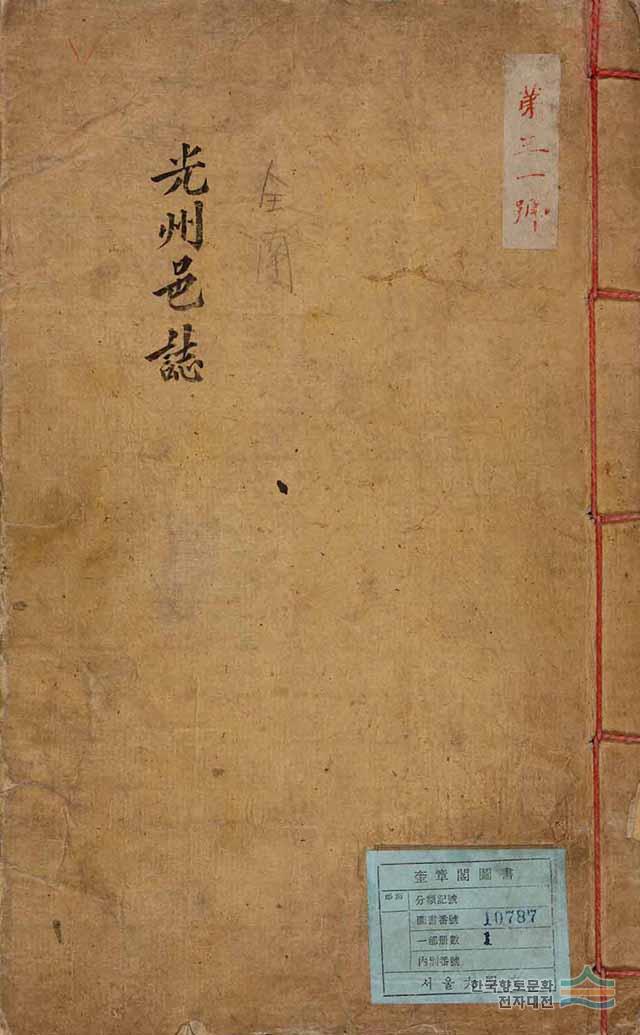 第三一號
全南
光州邑誌
奎章閣圖書
分類記號
圖書番號 10787
一部冊數 1
內別番號
서울大
한국향토문화
전자대전